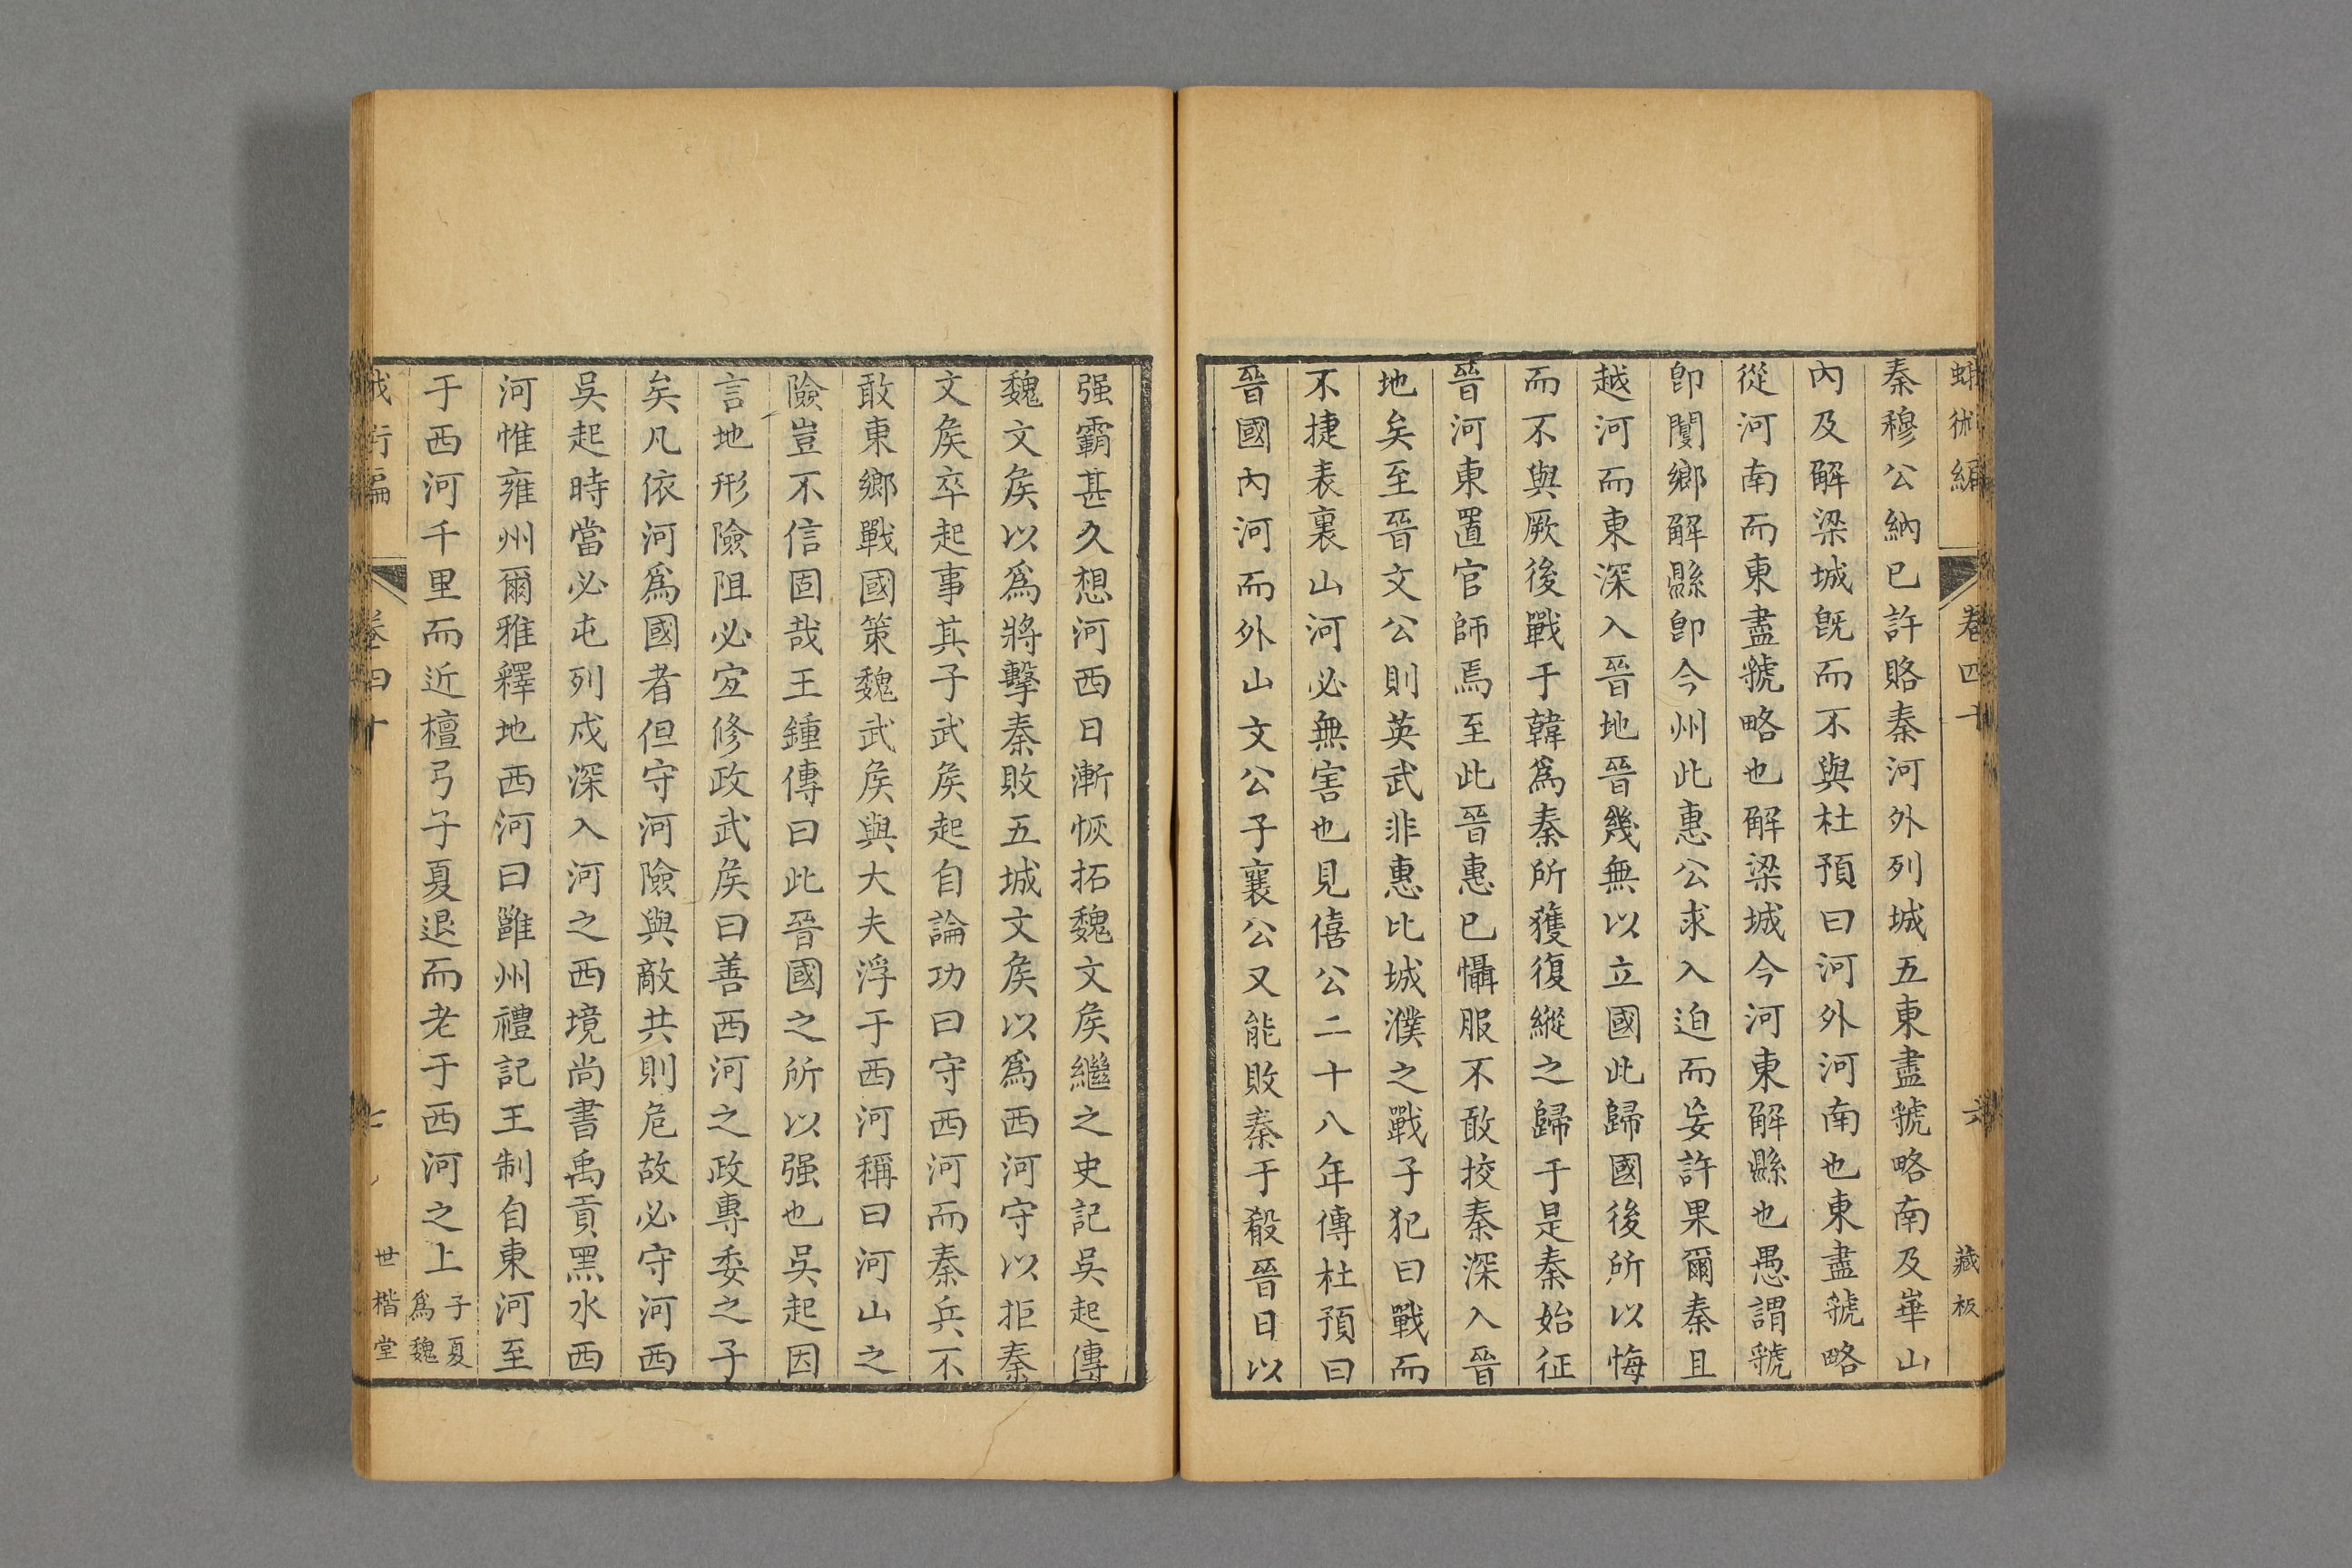 蛾術編 卷四十 六 藏板
秦穆公納已許賂秦河外列城五東盡虢略南及崋山
內及解梁城旣而不與杜預曰河外河南也東盡虢略
從河南而東盡虢略也解梁城今河東解縣也愚謂虢
卽閿鄉解縣卽今州此惠公求入迫而妄許果爾秦且
越河而東深入晉地晉幾無以立國此歸國後所以悔
而不與厥後戰于韓爲秦所獲復縱之歸于是秦始征
晉河東置官師焉至此晉惠已懾服不敢挍秦深入晉
地矣至晉文公則英武非惠比城濮之戰子犯曰戰而
不捷表裏山河必無害也見僖公二十八年傳杜預曰
晉國內河而外山文公子襄公又能敗秦于殽晉日以
强霸甚久想河西日漸恢拓魏文矦繼之史記吳起傳
魏文矦以爲將擊秦敗五城文矦以爲西河守以拒秦
文矦卒起事其子武矦起自論功曰守西河而秦兵不
敢東鄉戰國策魏武矦與大夫浮于西河稱曰河山之
險豈不信固哉王鍾傳曰此晉國之所以强也吳起因
言地形險阻必宐修政武矦曰善西河之政專委之子
矣凡依河爲國者但守河險與敵共則危故必守河西
吳起時當必屯列戍深入河之西境尚書禹貢黑水西
河惟雍州爾雅釋地西河曰雝州禮記王制自東河至
于西河千里而近檀弓子夏退而老于西河之上子夏爲魏
卷四十 七 世楷堂